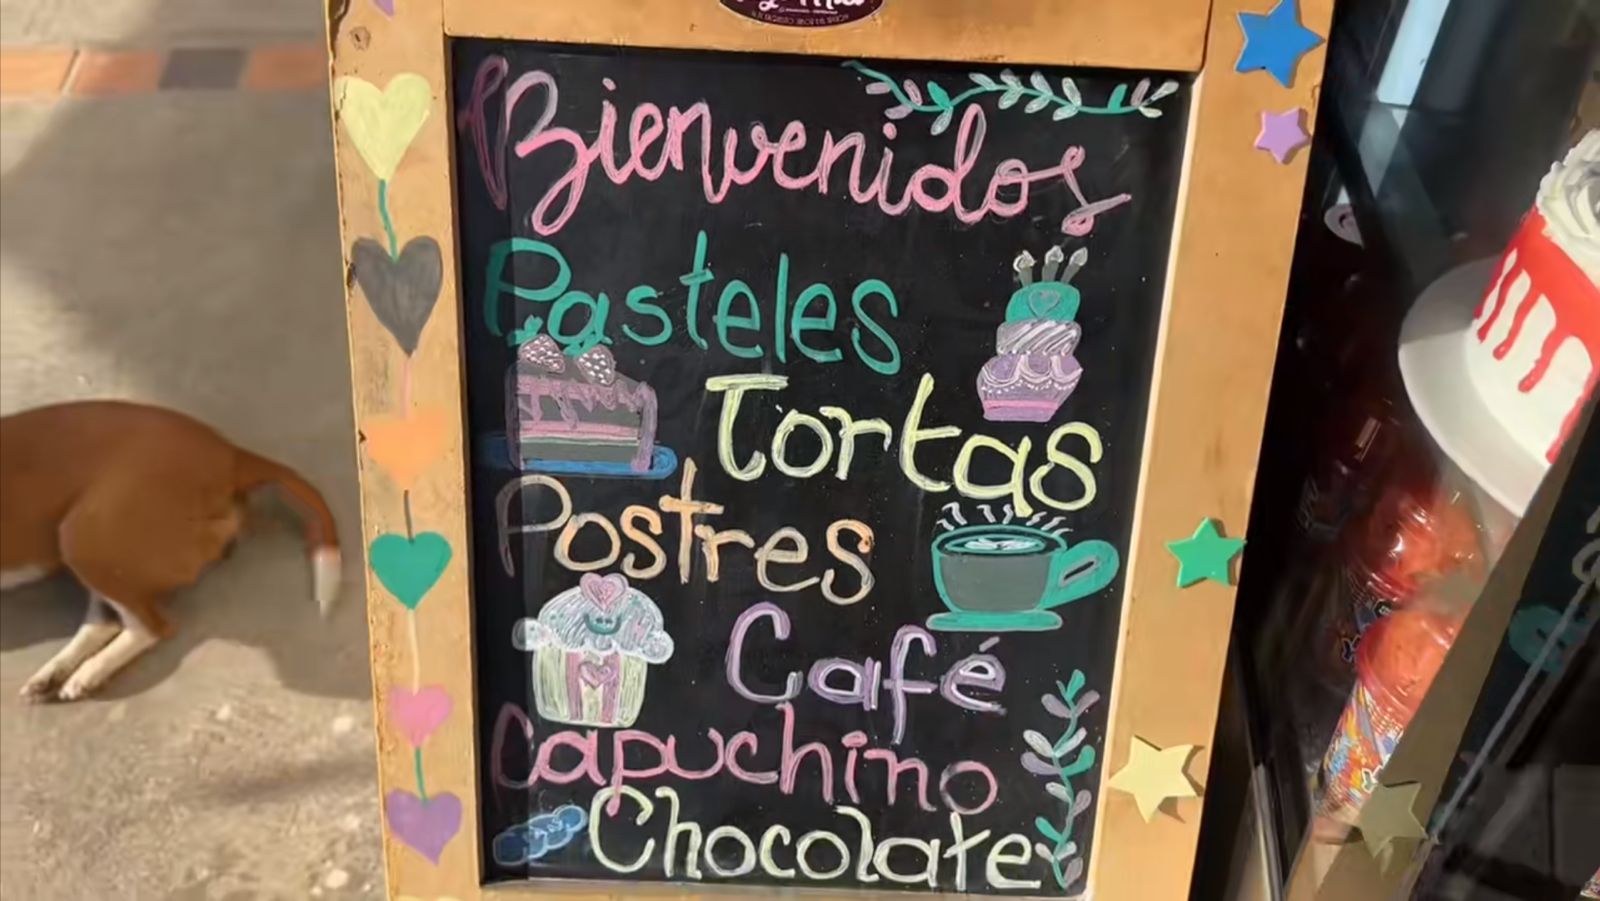 Bienvenidos
Pasteles
Tortas
Postres
Café
Capuchino
Chocolate